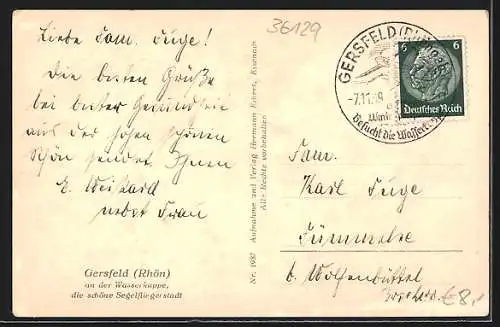 36129
Liebe Fam. Füge!
Die besten Grüße
bei bester Gesundheit
aus der hohen schönen
Rhön sendet Ihnen
E.
nebst Frau
Gersfeld (Rhön)
an der Wasserkuppe,
die schöne Segelfliegerstadt
Nr. 1937 Aufnahme und Verlag Hermann Eckert, Eisenach
Alle Rechte vorbehalten
GERSFELD (RHÖN)
-7.11.39
Besucht die Wasserkuppe
6 6
Deutsches Reich
Fam.
Karl Füge
Fümmelse
b. Wolfenbüttel
€8,-